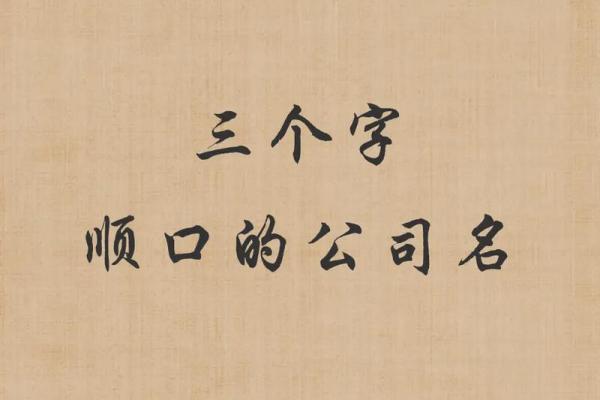 三个字
顺口的公司名